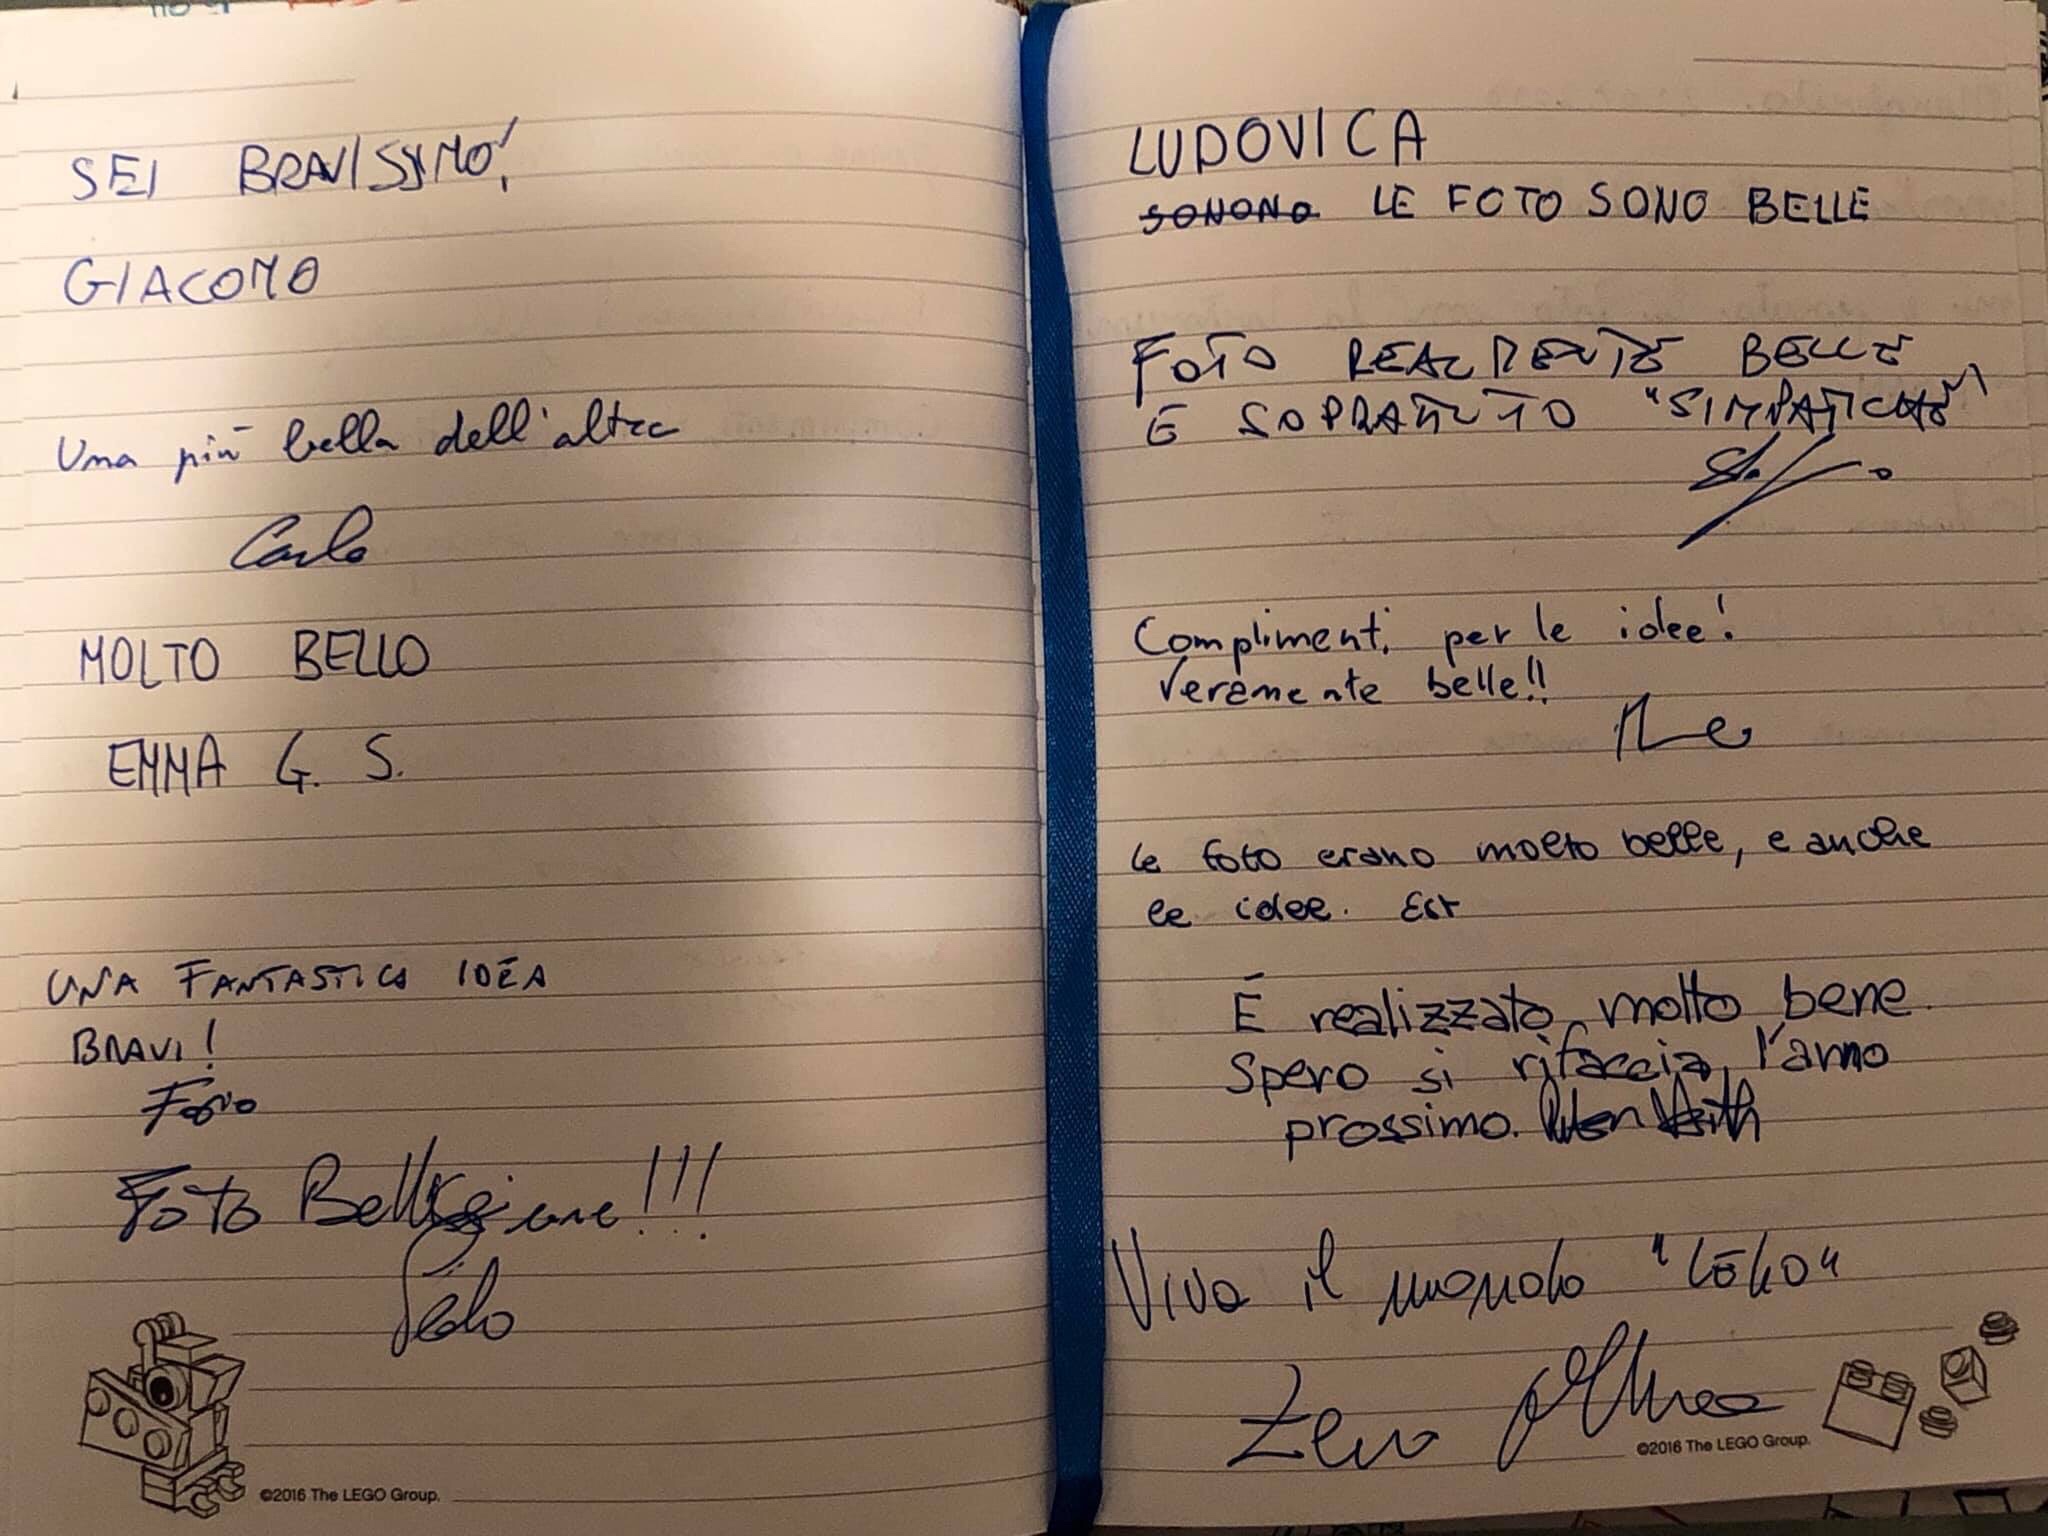 SEI BRAVISSIMO!
GIACOMO
Una più bella dell'altra
Carlo
MOLTO BELLO
EMMA G. S.
UNA FANTASTICA IDEA
BRAVI!
Foto
!!!
©2016 The LEGO Group.
LUDOVICA
SONONO LE FOTO SONO BELLE
FOTO REALMENTE BELLE
E SOPRATTUTO "SIMPATICHE"
Complimenti per le idee!
Veramente belle!!
le foto erano molto belle, e anche
le idee. Est
È realizzato molto bene.
Spero si rifaccia l'anno
prossimo.
Viva il mondo "LEGO"
Zeno
©2016 The LEGO Group.